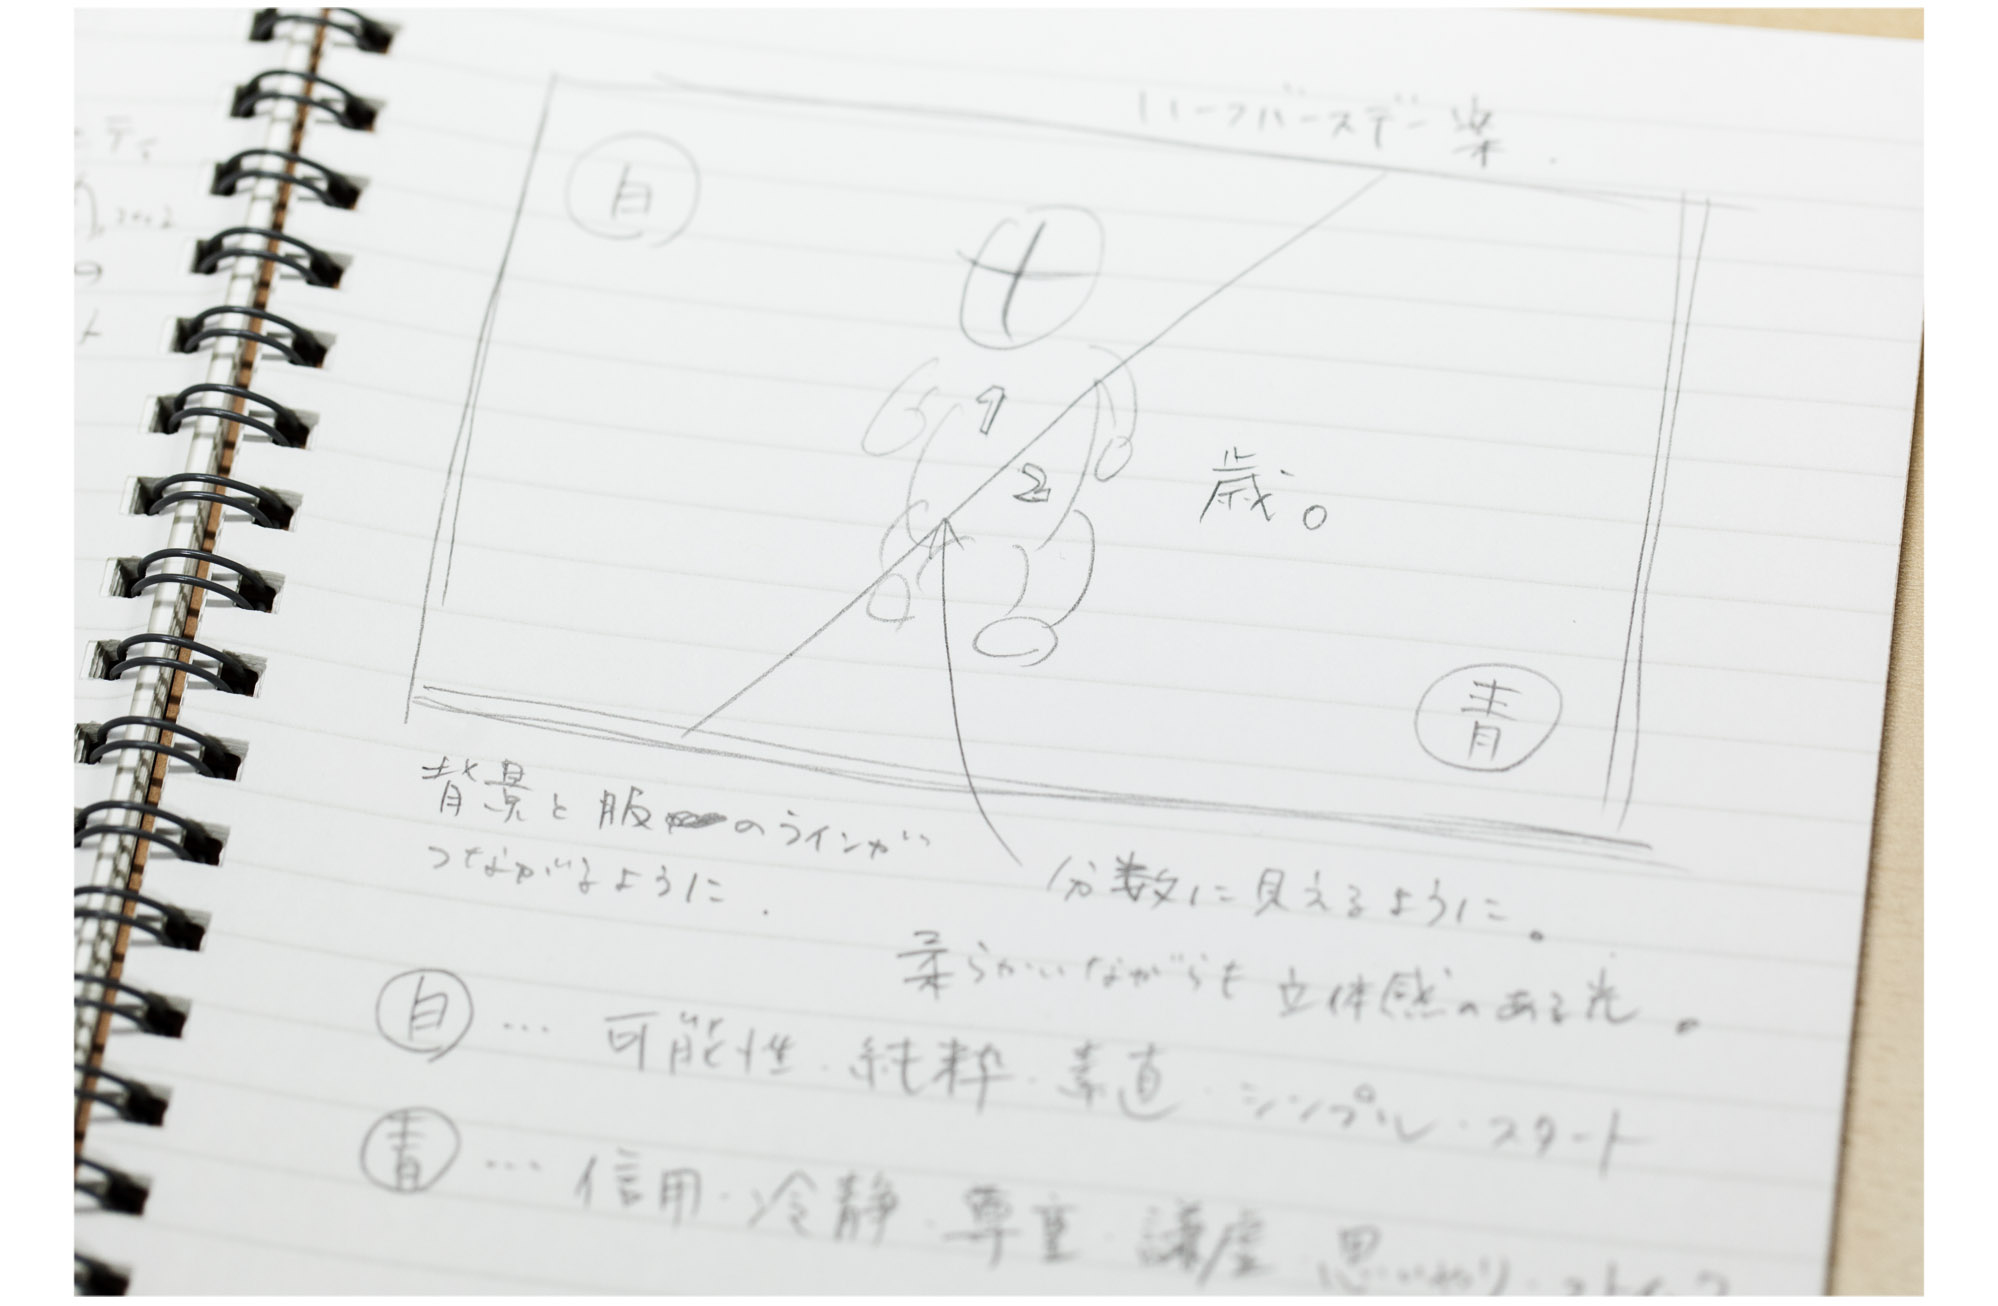 ハーフバースデー案.
白
1
2
歳。
青
背景と服のラインが
つながるように.
分数に見えるように。
柔らかいながらも立体感のある光。
白…可能性・純粋・素直・シンプル・スタート
青…信用・冷静・尊重・謙虚 思いやり・ストイック